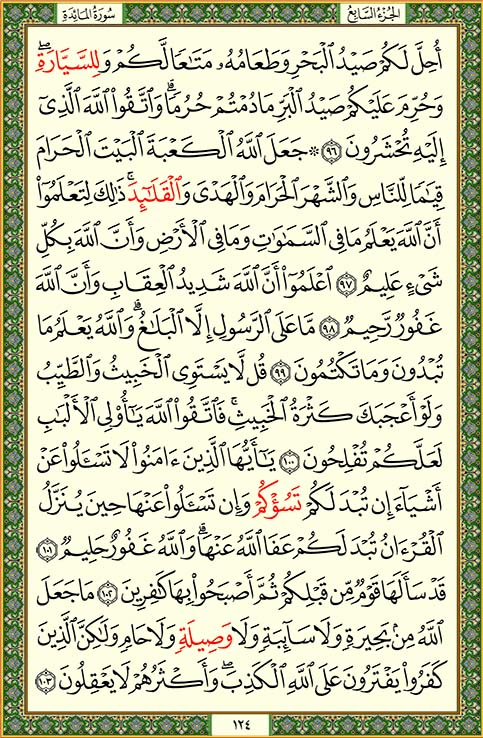 الجُزْءُ السَّابِعُ
سُورَةُ المَائِدَةِ
أُحِلَّ لَكُمْ صَيْدُ ٱلْبَحْرِ وَطَعَامُهُۥ مَتَٰعًا لَّكُمْ وَلِلسَّيَّارَةِۖ
وَحُرِّمَ عَلَيْكُمْ صَيْدُ ٱلْبَرِّ مَا دُمْتُمْ حُرُمًاۗ وَٱتَّقُوا۟ ٱللَّهَ ٱلَّذِىٓ
إِلَيْهِ تُحْشَرُونَ ٩٦ ۞ جَعَلَ ٱللَّهُ ٱلْكَعْبَةَ ٱلْبَيْتَ ٱلْحَرَامَ
قِيَٰمًا لِّلنَّاسِ وَٱلشَّهْرَ ٱلْحَرَامَ وَٱلْهَدْىَ وَٱلْقَلَٰٓئِدَۚ ذَٰلِكَ لِتَعْلَمُوٓا۟
أَنَّ ٱللَّهَ يَعْلَمُ مَا فِى ٱلسَّمَٰوَٰتِ وَمَا فِى ٱلْأَرْضِ وَأَنَّ ٱللَّهَ بِكُلِّ
شَىْءٍ عَلِيمٌ ٩٧ ٱعْلَمُوٓا۟ أَنَّ ٱللَّهَ شَدِيدُ ٱلْعِقَابِ وَأَنَّ ٱللَّهَ
غَفُورٌ رَّحِيمٌ ٩٨ مَّا عَلَى ٱلرَّسُولِ إِلَّا ٱلْبَلَٰغُۗ وَٱللَّهُ يَعْلَمُ مَا
تُبْدُونَ وَمَا تَكْتُمُونَ ٩٩ قُل لَّا يَسْتَوِى ٱلْخَبِيثُ وَٱلطَّيِّبُ
وَلَوْ أَعْجَبَكَ كَثْرَةُ ٱلْخَبِيثِۚ فَٱتَّقُوا۟ ٱللَّهَ يَٰٓأُو۟لِى ٱلْأَلْبَٰبِ
لَعَلَّكُمْ تُفْلِحُونَ ١٠٠ يَٰٓأَيُّهَا ٱلَّذِينَ ءَامَنُوا۟ لَا تَسْـَٔلُوا۟ عَنْ
أَشْيَآءَ إِن تُبْدَ لَكُمْ تَسُؤْكُمْ وَإِن تَسْـَٔلُوا۟ عَنْهَا حِينَ يُنَزَّلُ
ٱلْقُرْءَانُ تُبْدَ لَكُمْ عَفَا ٱللَّهُ عَنْهَاۗ وَٱللَّهُ غَفُورٌ حَلِيمٌ ١٠١
قَدْ سَأَلَهَا قَوْمٌ مِّن قَبْلِكُمْ ثُمَّ أَصْبَحُوا۟ بِهَا كَٰفِرِينَ ١٠٢ مَا جَعَلَ
ٱللَّهُ مِنۢ بَحِيرَةٍ وَلَا سَآئِبَةٍ وَلَا وَصِيلَةٍ وَلَا حَامٍ وَلَٰكِنَّ ٱلَّذِينَ
كَفَرُوا۟ يَفْتَرُونَ عَلَى ٱللَّهِ ٱلْكَذِبَۖ وَأَكْثَرُهُمْ لَا يَعْقِلُونَ ١٠٣
١٢٤